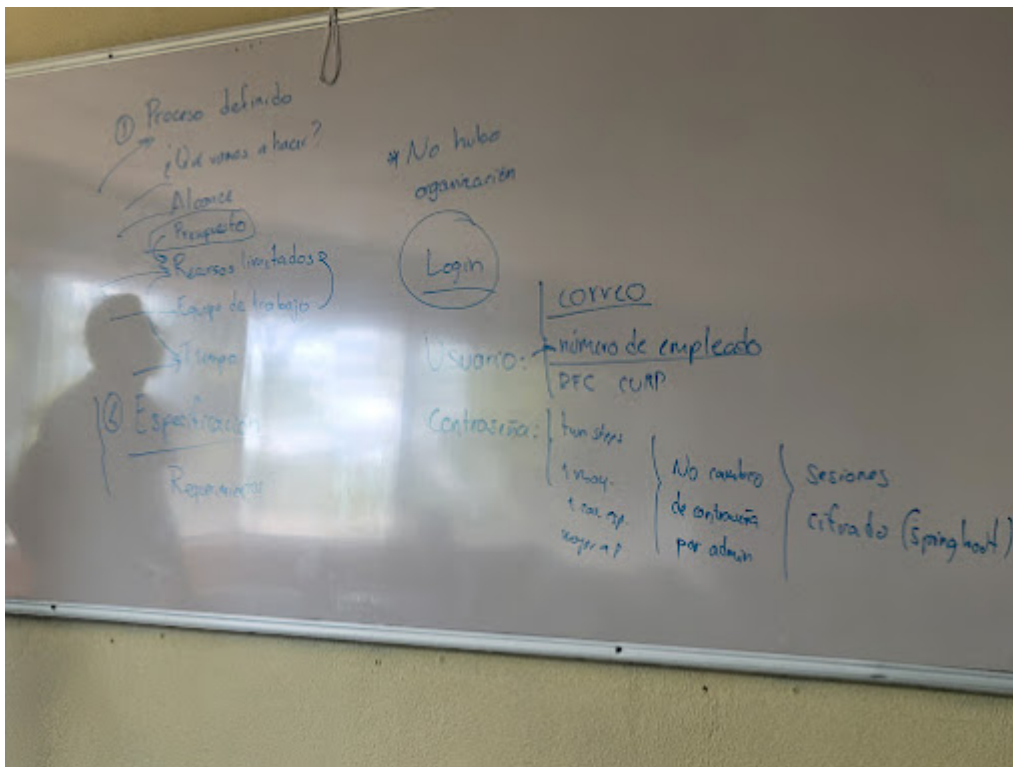 ① Proceso definido
¿Qué vamos a hacer?
Alcance
Presupuesto
Recursos limitados
Equipo de trabajo
Tiempo
Especificación
Requerimientos
* No hubo
organización
Login
Usuario:
correo
número de empleado
RFC CURP
Contraseña:
1 may.
1 car. esp.
No cambio
de contraseña
por admin
Sesiones
cifrado (Springboot)